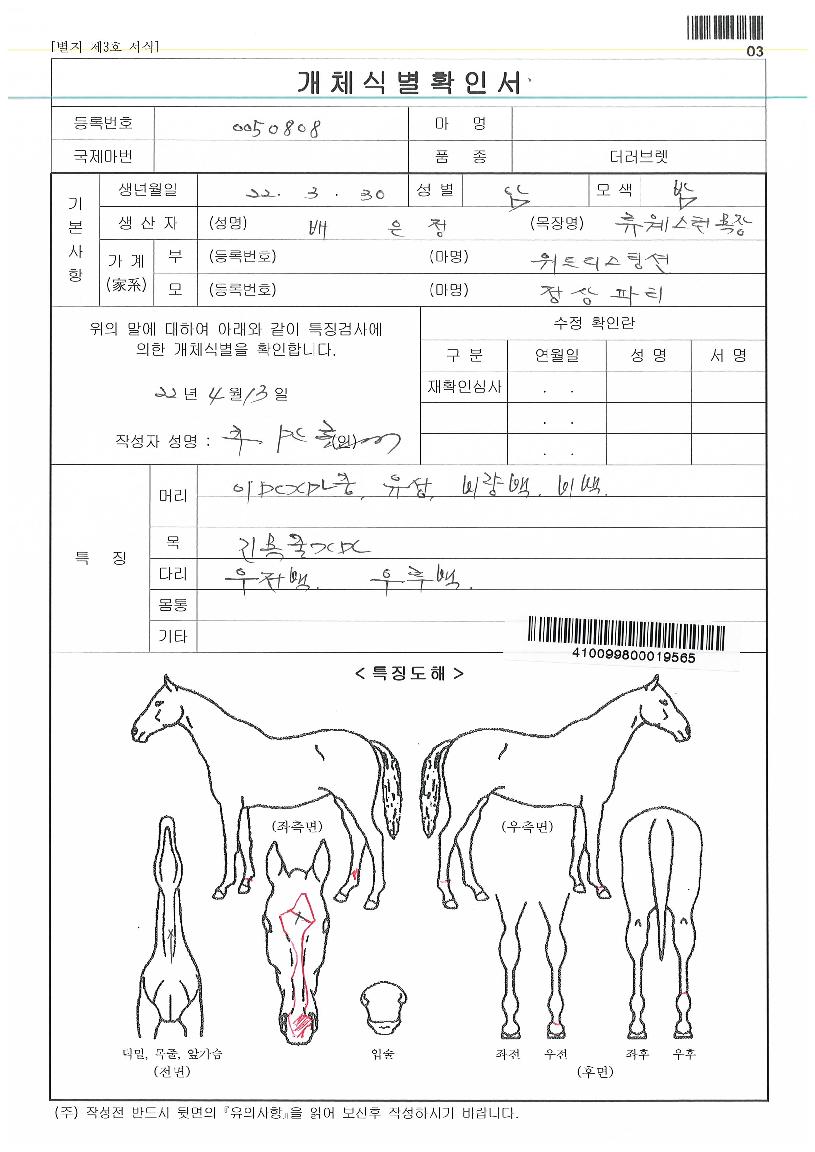 [별지 제3호 서식]
03
개체식별확인서
등록번호 0050808 마 명
국제마번 품 종 더러브렛
기본사항
생년월일 22. 3. 30 성별 암 모색 밤
생산자 (성명) 배 은 정 (목장명)
가계 (家系) 부 (등록번호) (마명) 위트디스팅션
모 (등록번호) (마명) 장상파티
위의 말에 대하여 아래와 같이 특징검사에
의한 개체식별을 확인합니다.
22년 4월 13일
작성자 성명 : (인)
수정 확인란
구 분 연월일 성 명 서 명
재확인심사 . .
. .
. .
특 징
머리 유성, 비량백, 비백.
목
다리 우전백. 우후백.
몸통
기타
410099800019565
< 특징도해 >
(좌측면) (우측면)
턱밑, 목줄, 앞가슴
(전면)
입술
좌전 우전 좌후 우후
(후면)
(주) 작성전 반드시 뒷면의 『유의사항』을 읽어 보신후 작성하시기 바랍니다.